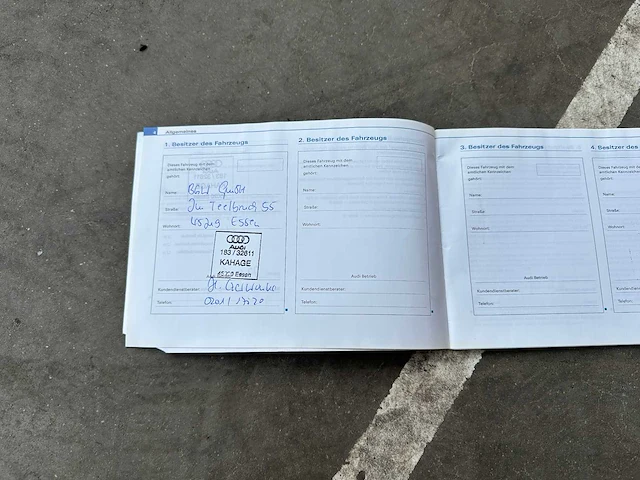 4 Allgemeines
1. Besitzer des Fahrzeugs
Dieses Fahrzeug mit dem
amtlichen Kennzeichen
gehört:
Name: GmbH
Straße: Im Teelbruch 55
45219 Essen
Wohnort:
Audi
183 / 32611
KAHAGE
45219 Essen
Kundendienstberater: H.
Telefon: 0201 /
2. Besitzer des Fahrzeugs
Dieses Fahrzeug mit dem
amtlichen Kennzeichen
gehört:
Name:
Straße:
Wohnort:
Audi Betrieb
Kundendienstberater:
Telefon:
3. Besitzer des Fahrzeugs
Dieses Fahrzeug mit dem
amtlichen Kennzeichen
gehört:
Name:
Straße:
Wohnort:
Audi Betrieb
Kundendienstberater:
Telefon:
4. Besitzer des
Dieses Fahrzeug
amtlichen
gehört:
Name:
Straße:
Wohnort:
Kundendienst
Telefon: